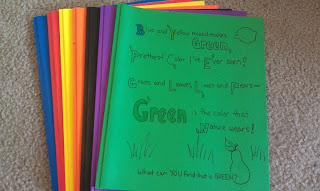 Blue and Yellow mixed makes
Green,
Prettiest Color I've Ever Seen!
Grass and Leaves, Limes and Pears—
Green is the color that
Nature wears!
What can YOU find that is GREEN?